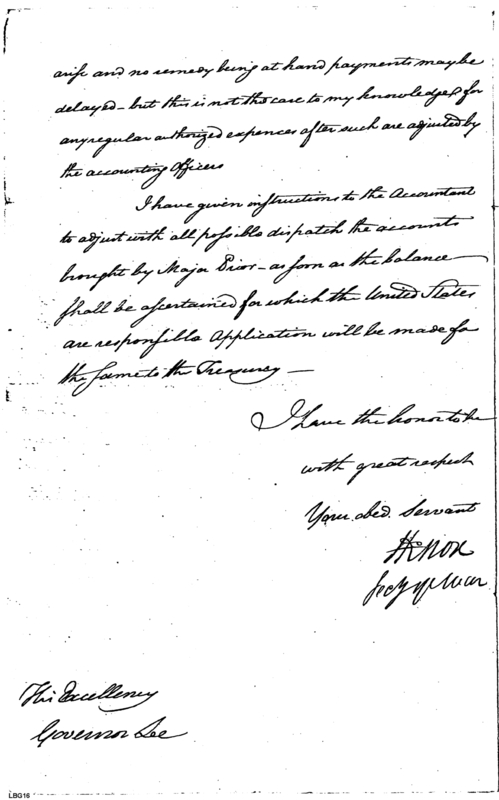 arise and no remedy being at hand payments may be
delayed - but this is not the case to my knowledge for
any regular authorized expences after such are adjusted by
the accounting Officers
I have given instructions to the Accountant
to adjust with all possible dispatch the accounts
brought by Major Prior - as soon as the balance
shall be ascertained for which the United States
are responsible Application will be made for
the same to the Treasury —
I have the honor to be
with great respect
Your obed. Servant
HKnox
Secy of War
His Excellency
Governor Lee
LBG16